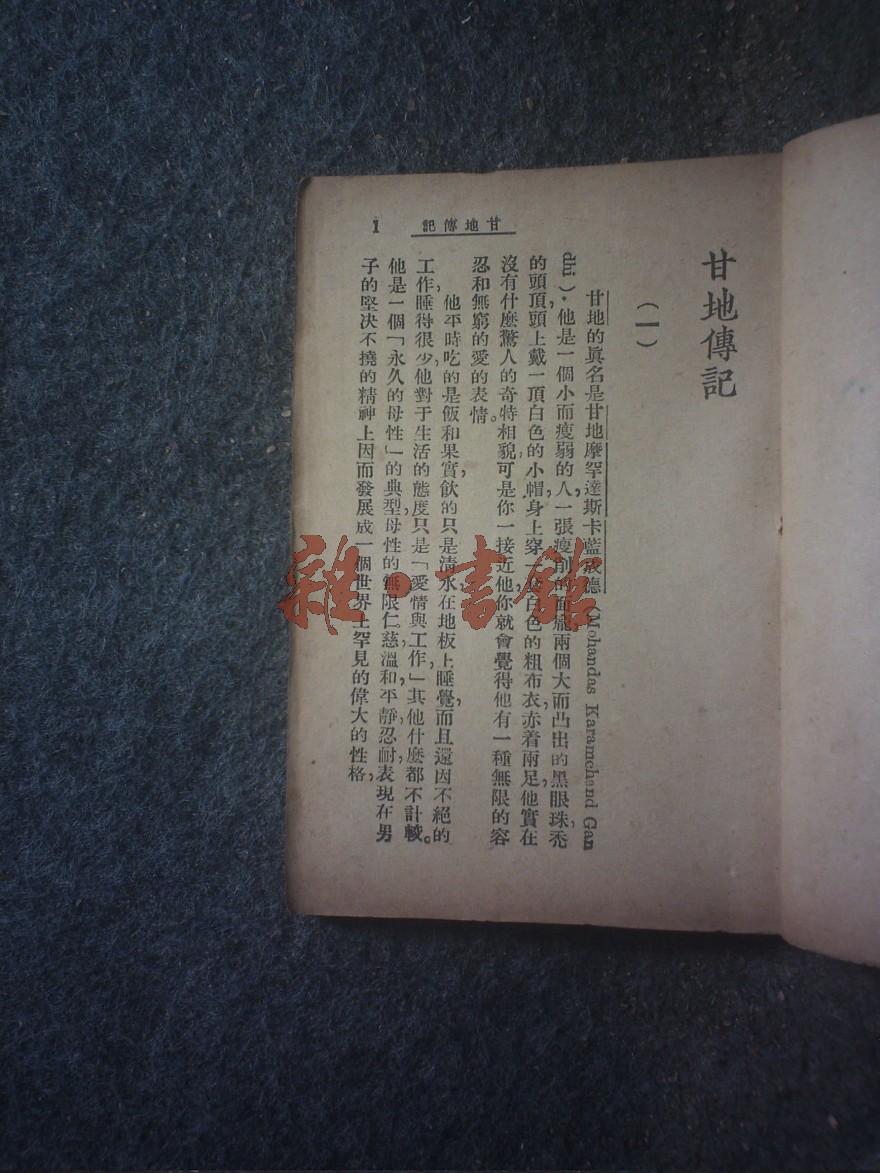 甘地傳記
(一)
甘地的眞名是甘地摩罕達斯卡藍成德(Mohandas Karamchand Gan
dhi)。他是一個小而瘦弱的人,一張瘦削的面龐,兩個大而凸出的黑眼珠,禿
的頭頂,頭上戴一頂白色的小帽,身上穿一套白色的粗布衣,赤着兩足,他實在
沒有什麼驚人的奇特相貌,可是你一接近他,你就會覺得他有一種無限的容
忍和無窮的愛的表情。
他平時吃的是飯和果實,飲的只是清水,在地板上睡覺,而且還因不絕的
工作,睡得很少,他對于生活的態度,只是「愛情與工作」,其他什麼都不計較。
他是一個「永久的母性」的典型,母性的無限仁慈,溫和,平靜,忍耐,表現在男
子的堅决不撓的精神上,因而發展成一個世界上罕見的偉大的性格,
甘地傳記
1
雜·書館